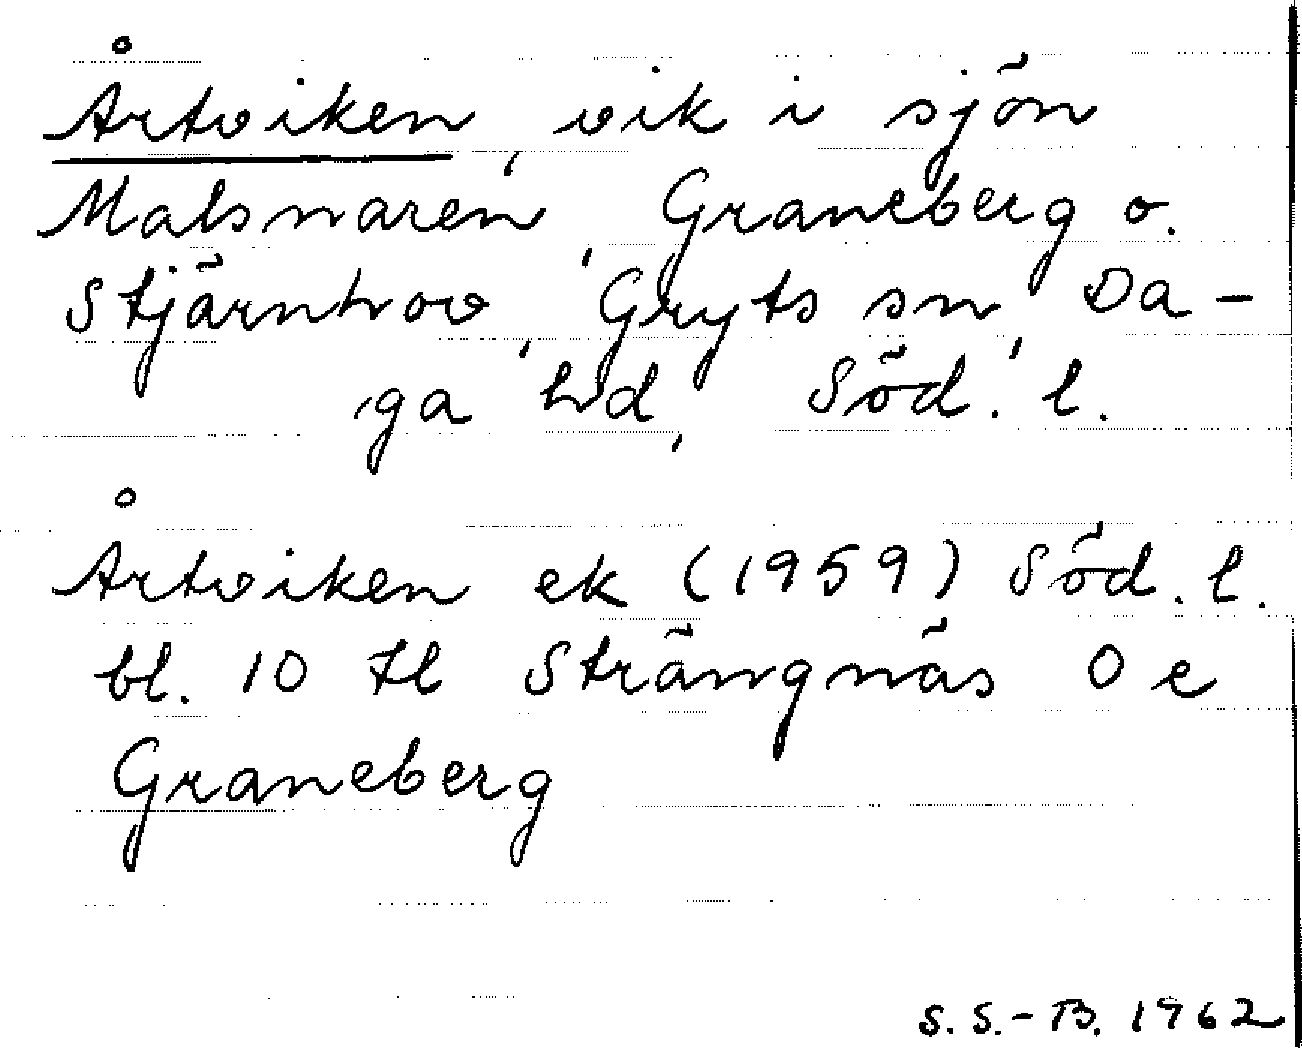 Årtviken, vik i sjön
Malsnaren, Graneberg o.
Stjärnhov, Gryts sn, Da-
ga hd, Söd. l.
Årtviken ek (1959) Söd. l.
bl. 10 tl Strängnäs O e
Graneberg
S. S.-B. 1962